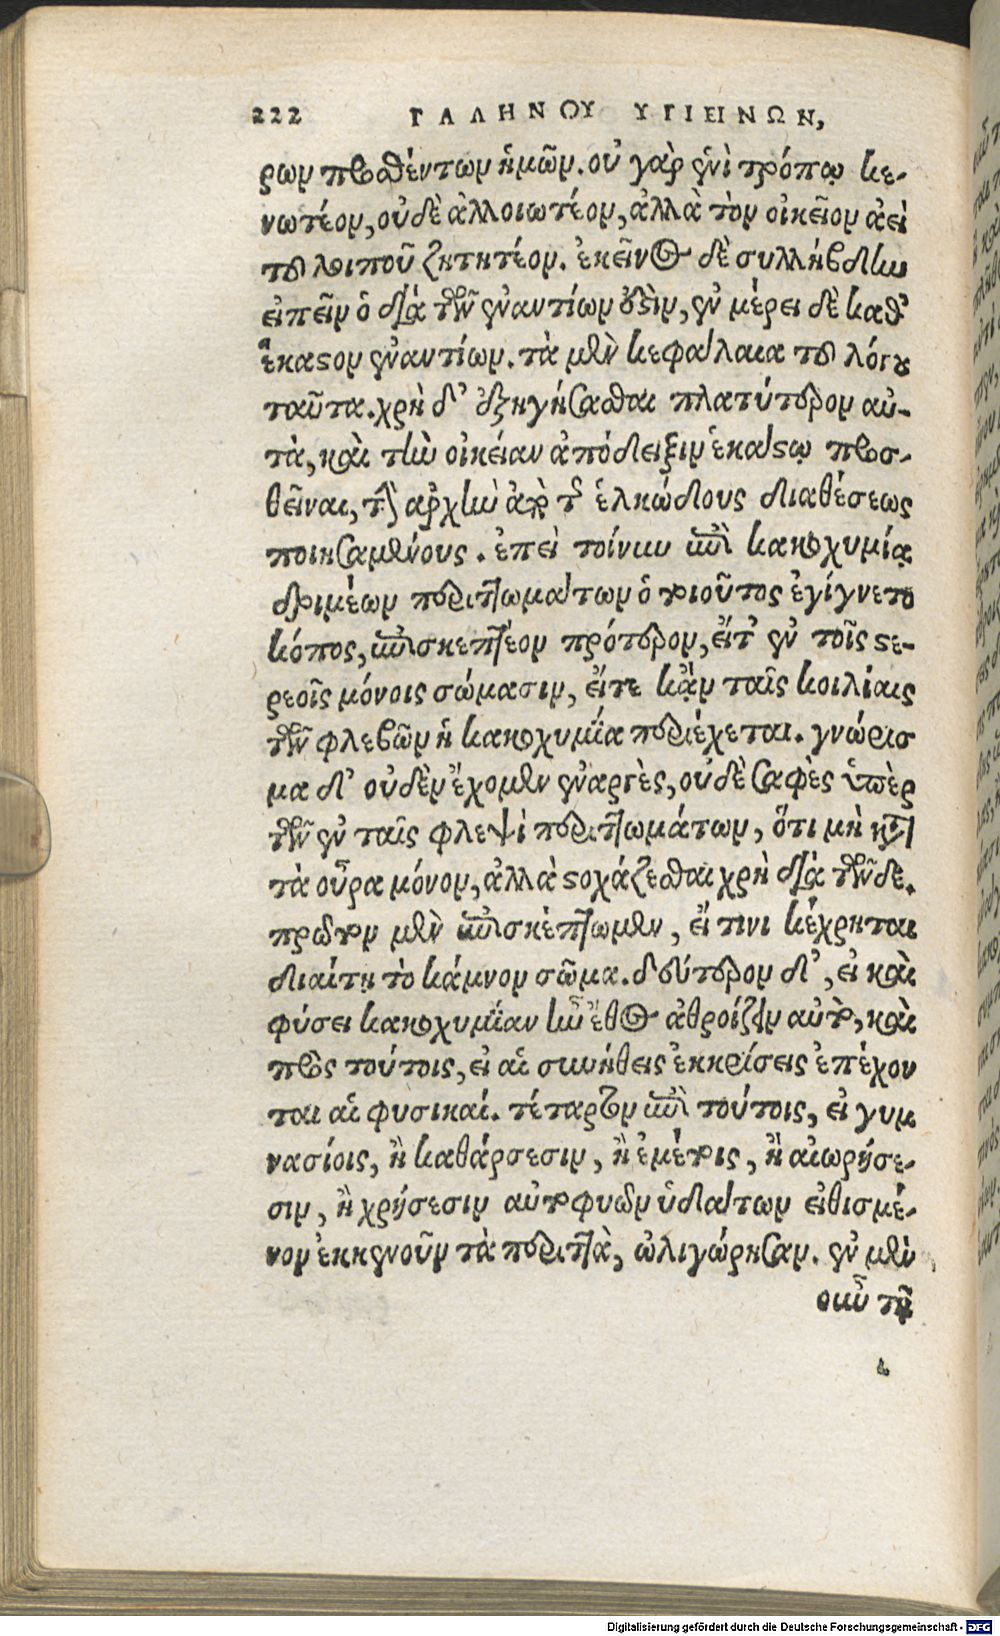 222 ΓΑΛΗΝΟΥ ΥΓΙΕΙΝΩΝ,
ρων προθέντων ἡμῶν. οὐ γὰρ ἑνὶ τρόπῳ κε-
νωτέον, οὐδὲ ἀλλοιωτέον, ἀλλὰ τὸν οἰκεῖον ἀεὶ
τοῦ λοιποῦ ζητητέον. ἐκεῖνος δὲ συλλήβδην
εἰπεῖν ὁ διὰ τῶν ἐναντίων ἐστὶν, ἐν μέρει δὲ καθ'
ἕκαστον ἐναντίων. τὰ μὲν κεφάλαια τοῦ λόγου
ταῦτα. χρὴ δ' ἐξηγήσασθαι πλατύτερον αὐ-
τὰ, καὶ τὴν οἰκείαν ἀπόδειξιν ἑκάστῳ προσ-
θεῖναι, τὴν ἀρχὴν ἀπὸ τῆς ἑλκώδους διαθέσεως
ποιησαμένους. ἐπεὶ τοίνυν ἐπὶ κακοχυμίᾳ
δριμέων περιττωμάτων ὁ τοιοῦτος ἐγίγνετο
κόπος, ἐπισκεπτέον πρότερον, εἴτ' ἐν τοῖς στε-
ρεοῖς μόνοις σώμασιν, εἴτε κἀν ταῖς κοιλίαις
τῶν φλεβῶν ἡ κακοχυμία περιέχεται. γνώρισ
μα δ' οὐδὲν ἔχομεν ἐναργὲς, οὐδὲ σαφὲς ὑπὲρ
τῶν ἐν ταῖς φλεψὶ περιττωμάτων, ὅτι μὴ κατὰ
τὰ οὖρα μόνον, ἀλλὰ στοχάζεσθαι χρὴ διὰ τῶνδε.
πρῶτον μὲν ἐπισκεπτώμεν, εἴ τινι κέχρηται
διαίτῃ τὸ κάμνον σῶμα. δεύτερον δ', εἰ καὶ
φύσει κακοχυμίαν ἦν ἔθος ἀθροίζειν αὐτὸ, καὶ
πρὸς τούτοις, εἰ αἱ συνήθεις ἐκκρίσεις ἐπέχον
ται αἱ φυσικαί. τέταρτον ἐπὶ τούτοις, εἰ γυμ
νασίοις, ἢ καθάρσεσιν, ἢ ἐμέτοις, ἢ αἰωρήσε-
σιν, ἢ χρήσεσιν αὐτοφυῶν ὑδάτων εἰθισμέ-
νον ἐκκενοῦν τὰ περιττὰ, ὠλιγώρησαν. ἐν μὲν
οὖν τῷ